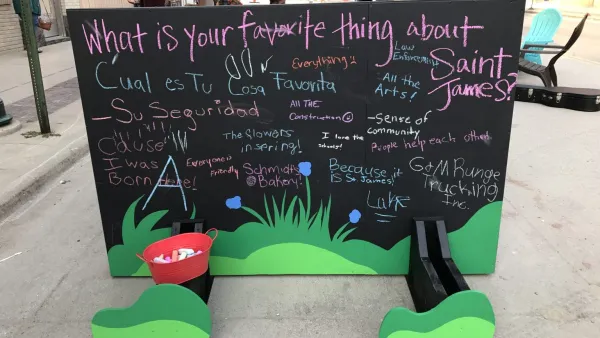 What is your favorite thing about
Saint
James?
Cual es Tu Cosa Favorita
Everything!
Law
Enforcement
All the
Arts!
- Su Seguridad
All THE
Construction
- Sense of
Community
Cause
I was
Born Here!
The flowers
in spering!
I love the
schools!
People help each other
Everyone is
friendly
Schmidt's
Bakery!
Because it
is St. James!
Luke
G & M Runge
Trucking
Inc.
A